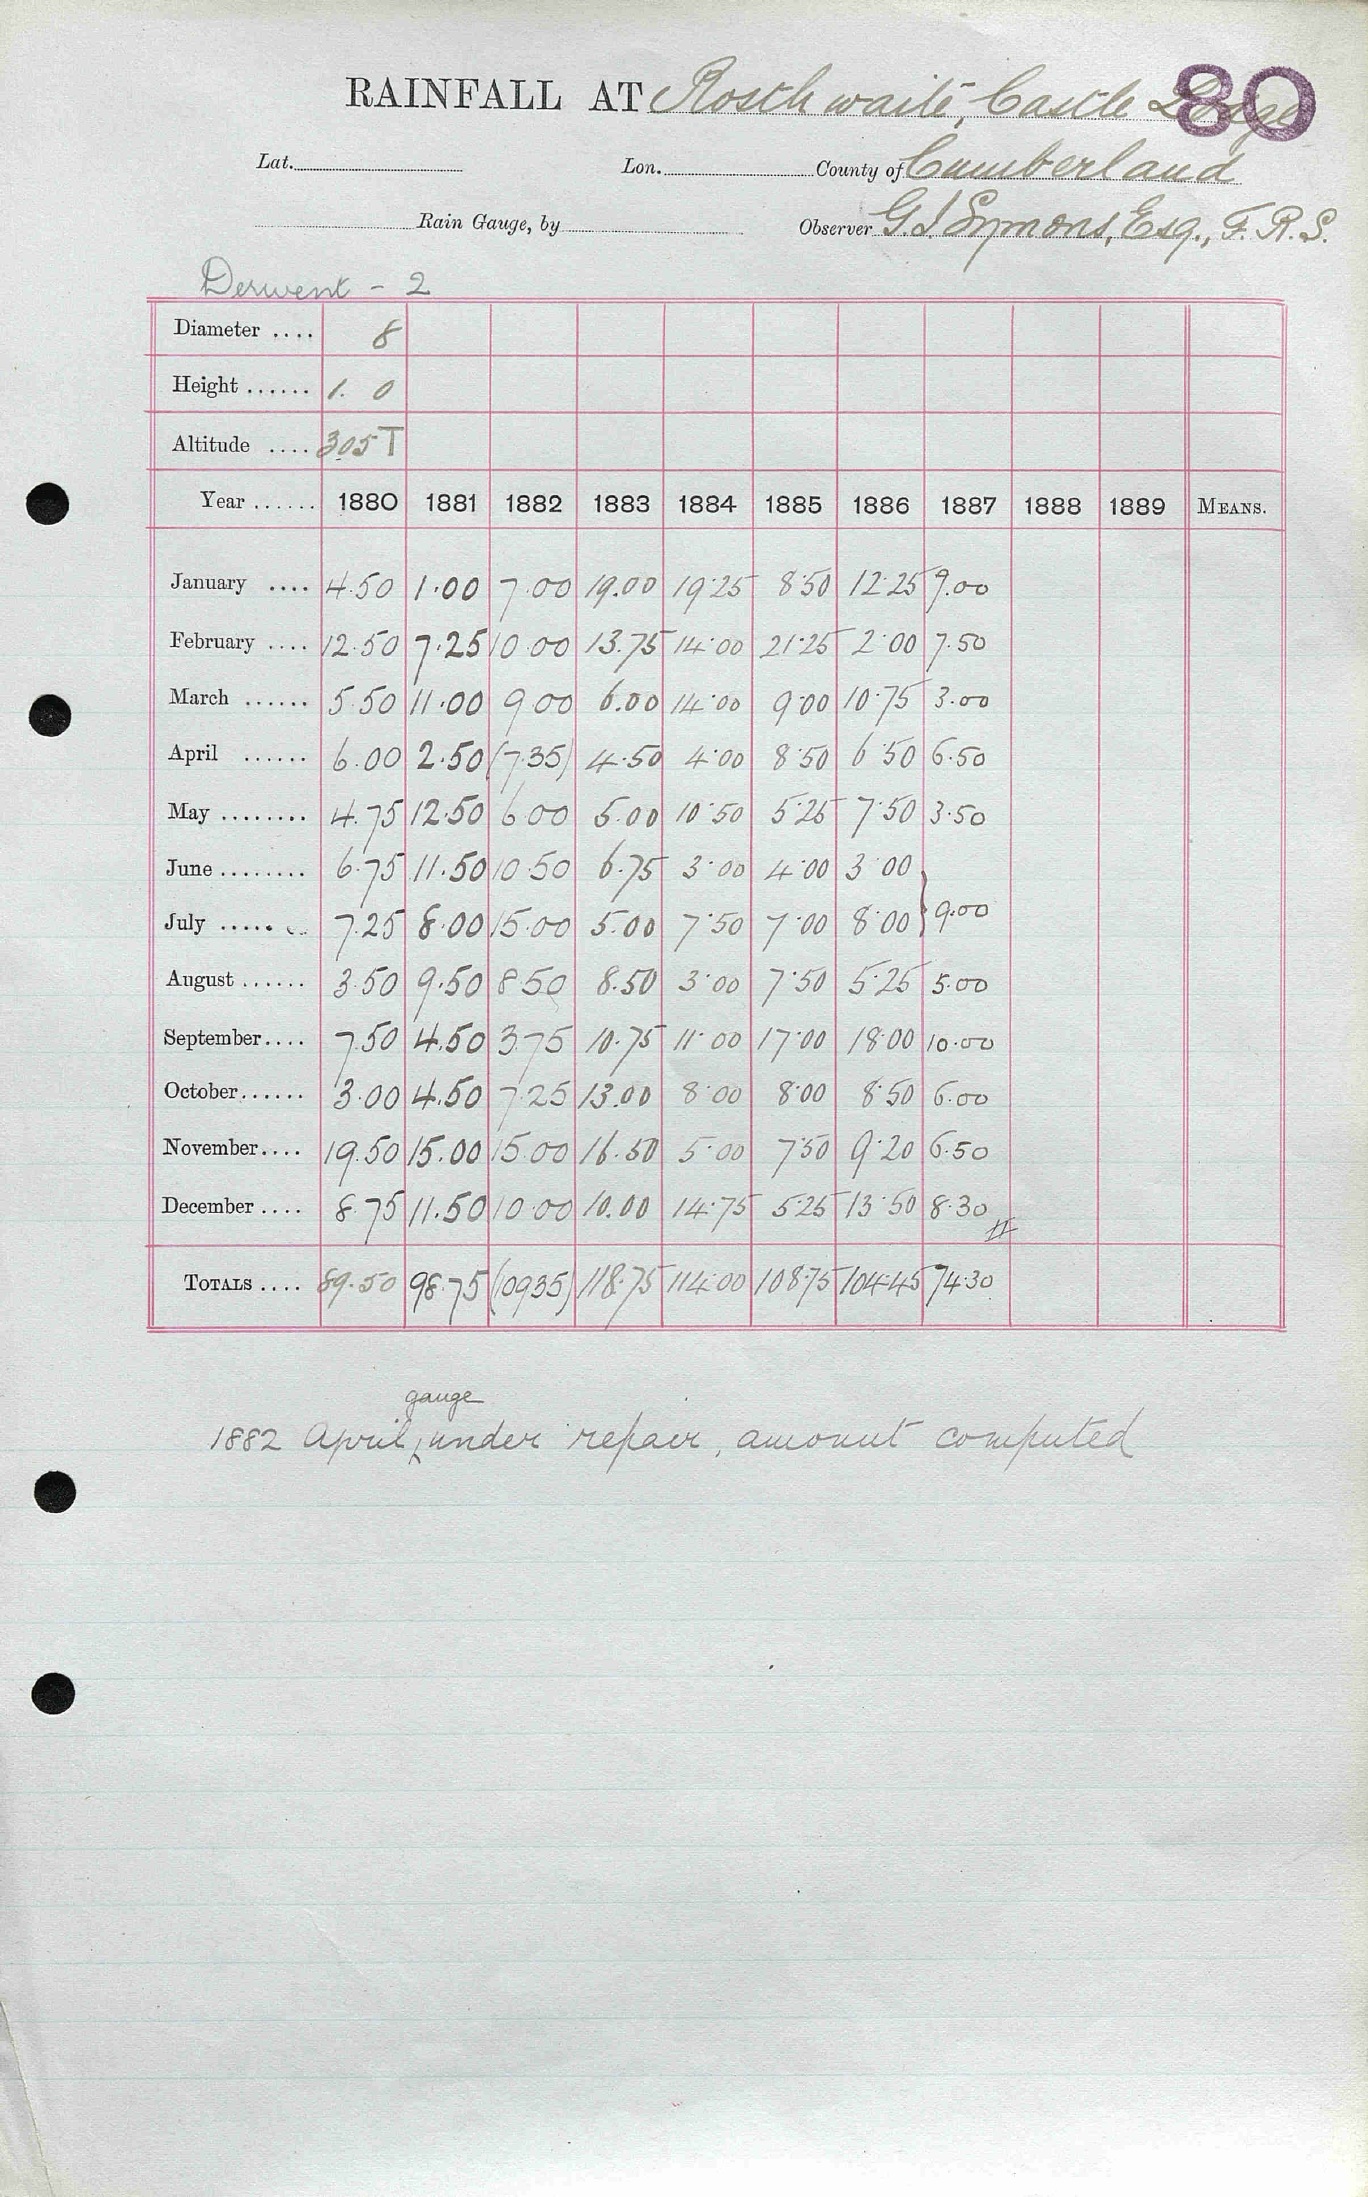 RAINFALL AT Rosthwaite, Castle Lodge 80
Lat. Lon. County of Cumberland
Rain Gauge, by Observer G. J. Symons, Esq., F. R. S.
Derwent - 2
Diameter .... 8
Height ...... 1. 0
Altitude .... 305 T
Year ...... 1880 1881 1882 1883 1884 1885 1886 1887 1888 1889 MEANS.
January .... 4.50 1.00 7.00 19.00 19.25 8.50 12.25 9.00
February .... 12.50 7.25 10.00 13.75 14.00 21.25 2.00 7.50
March ...... 5.50 11.00 9.00 6.00 14.00 9.00 10.75 3.00
April ...... 6.00 2.50 (7.35) 4.50 4.00 8.50 6.50 6.50
May ........ 4.75 12.50 6.00 5.00 10.50 5.25 7.50 3.50
June ........ 6.75 11.50 10.50 6.75 3.00 4.00 3.00
July ..... 7.25 8.00 15.00 5.00 7.50 7.00 8.00 } 9.00
August ...... 3.50 9.50 8.50 8.50 3.00 7.50 5.25 5.00
September.... 7.50 4.50 3.75 10.75 11.00 17.00 18.00 10.00
October...... 3.00 4.50 7.25 13.00 8.00 8.00 8.50 6.00
November.... 19.50 15.00 15.00 16.50 5.00 7.50 9.20 6.50
December .... 8.75 11.50 10.00 10.00 14.75 5.25 13.50 8.30
TOTALS .... 89.50 98.75 (109.35) 118.75 114.00 108.75 104.45 74.30
gauge
1882 April, under repair, amount computed